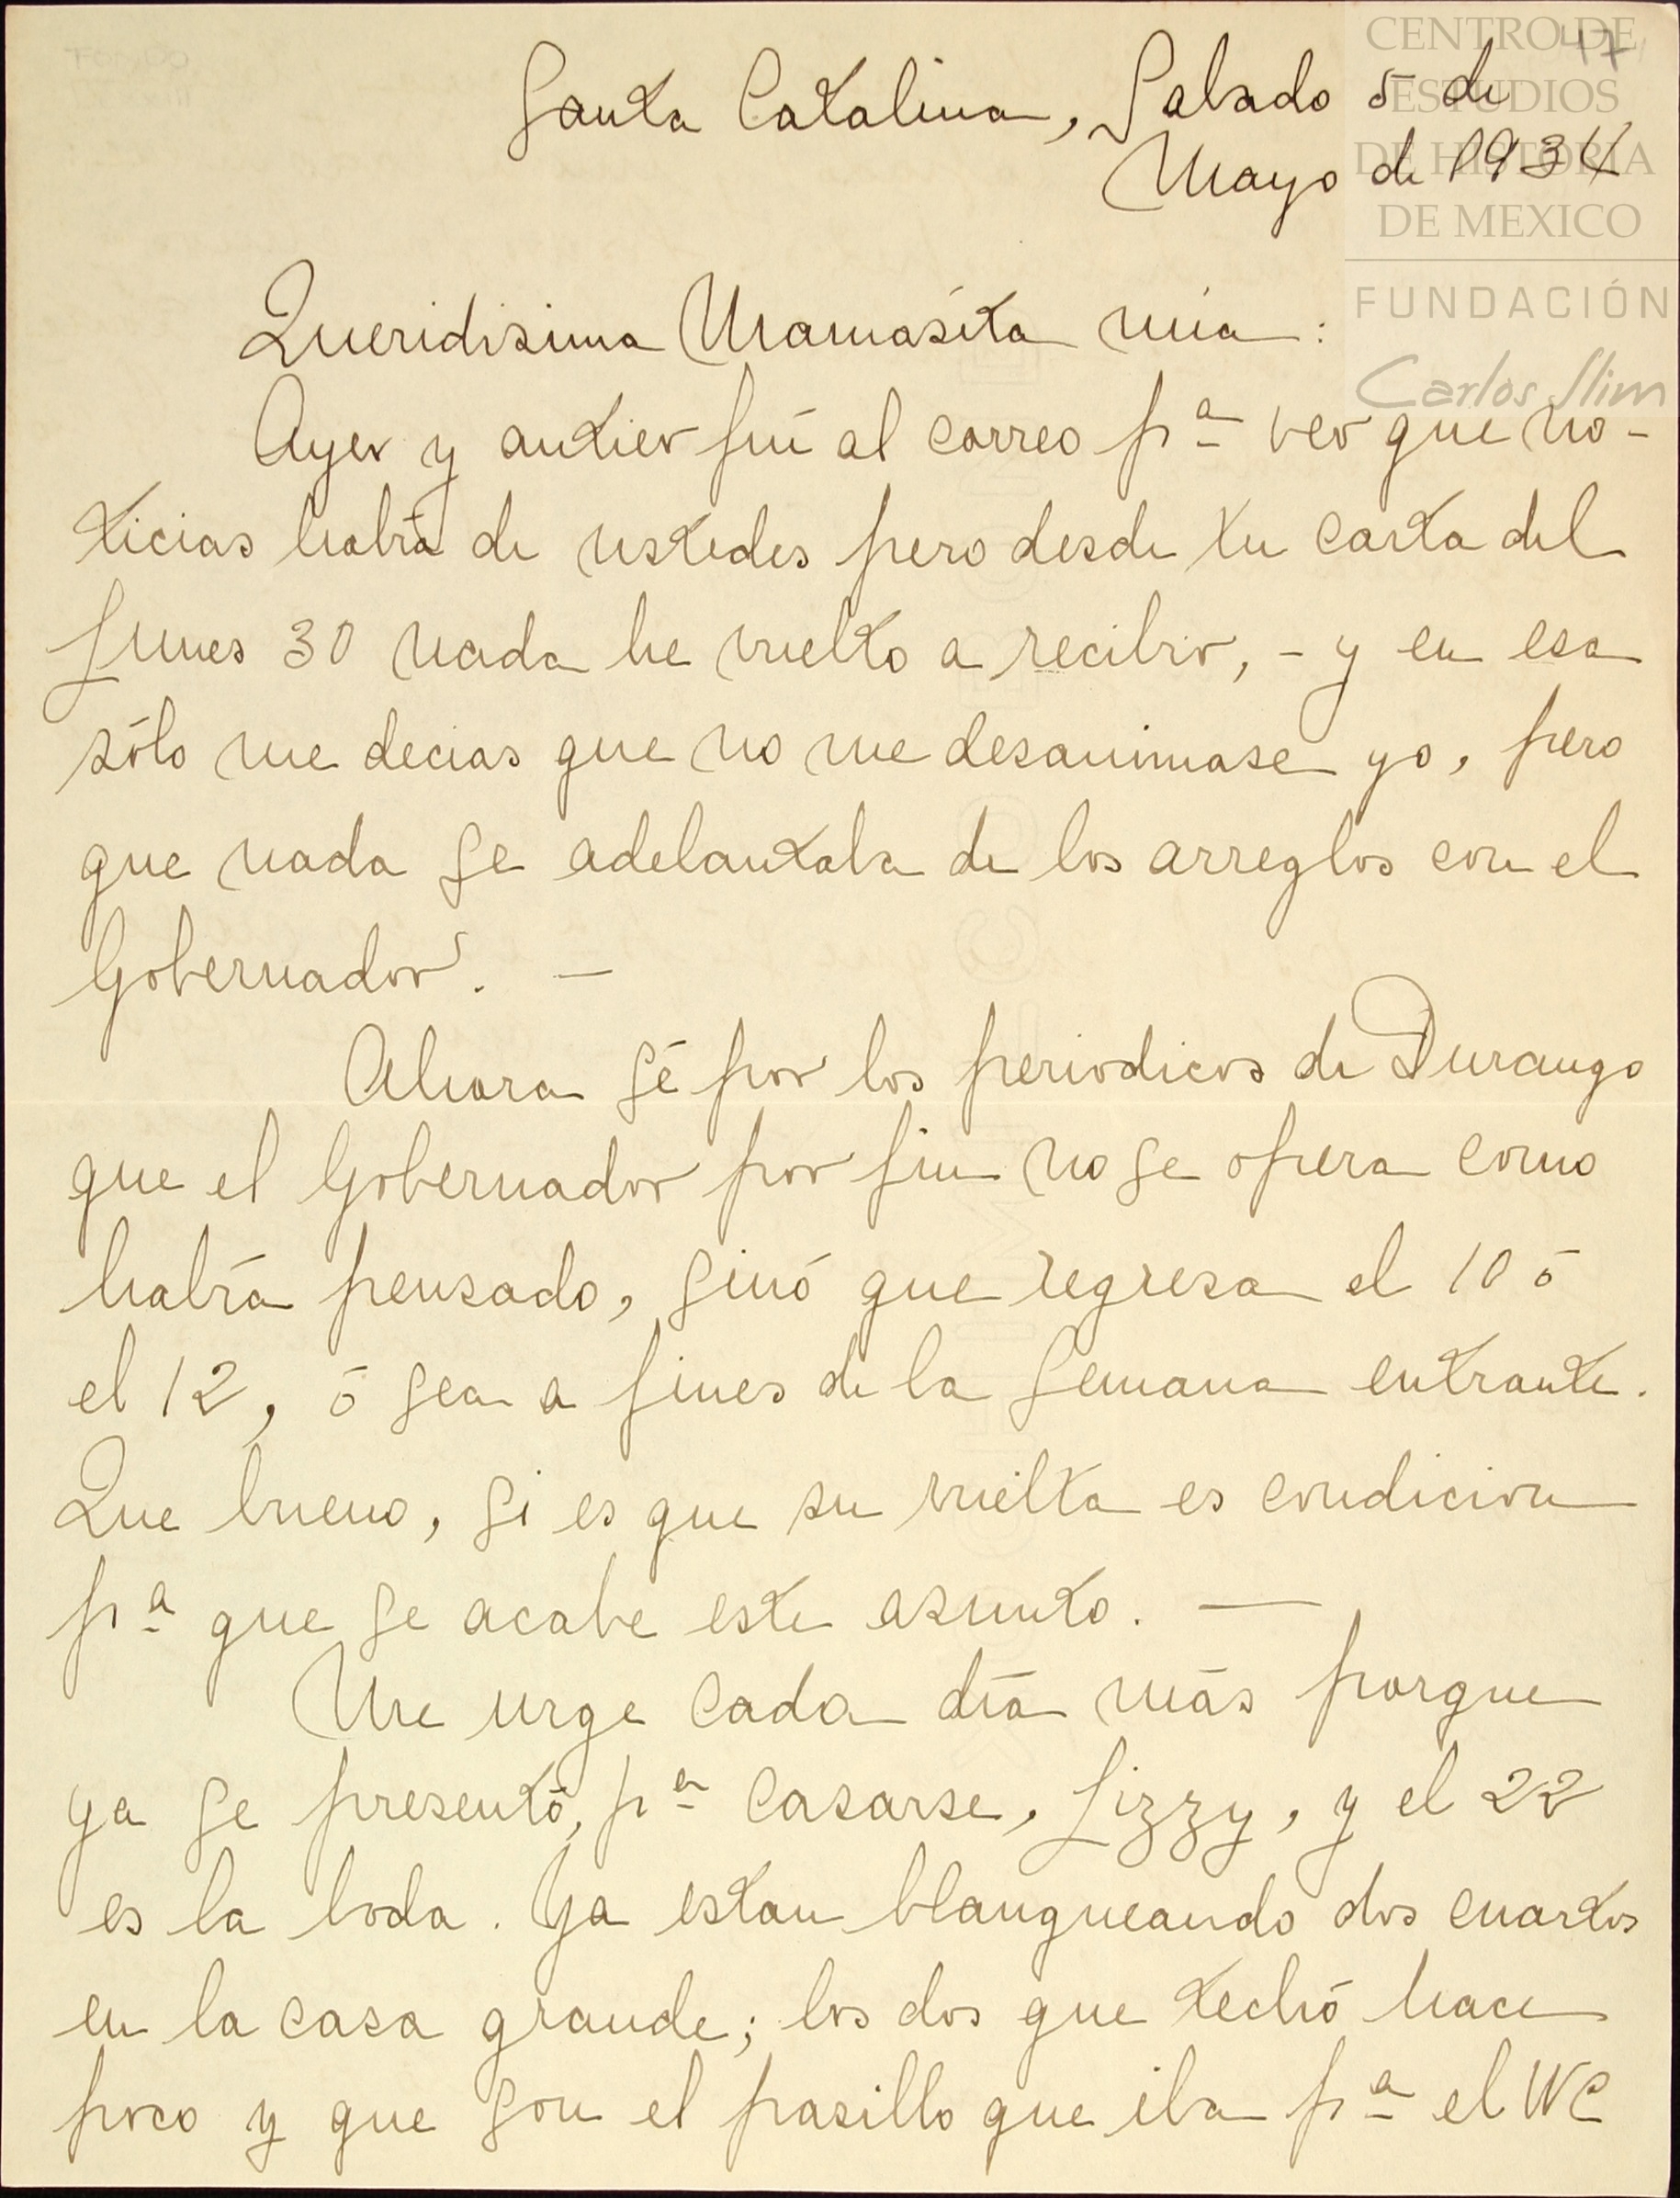 47
CENTRO DE
ESTUDIOS
DE HISTORIA
DE MEXICO
FUNDACIÓN
Carlos Slim
Santa Catalina, Sabado 5 de
Mayo de 1934
Queridisima Mamasita mia:
Ayer y antier fuí al correo pª ver que no-
ticias habia de ustedes pero desde tu carta del
Lunes 30 nada he vuelto a recibir, - y en esa
sólo me decias que no me desanimase yo, pero
que nada se adelantaba de los arreglos con el
Gobernador. —
Ahora sé por los periodicos de Durango
que el Gobernador por fin no se opera como
habia pensado, sinó que regresa el 10 ó
el 12, ó sea a fines de la semana entrante.
Que bueno, si es que su vuelta es condicion
pª que se acabe este asunto. —
Me urge cada día más porque
ya se presentó, pª casarse, Lizzy, y el 22
es la boda. Ya estan blanqueando dos cuartos
en la casa grande; los dos que techó hace
poco y que son el pasillo que iba pª el WC